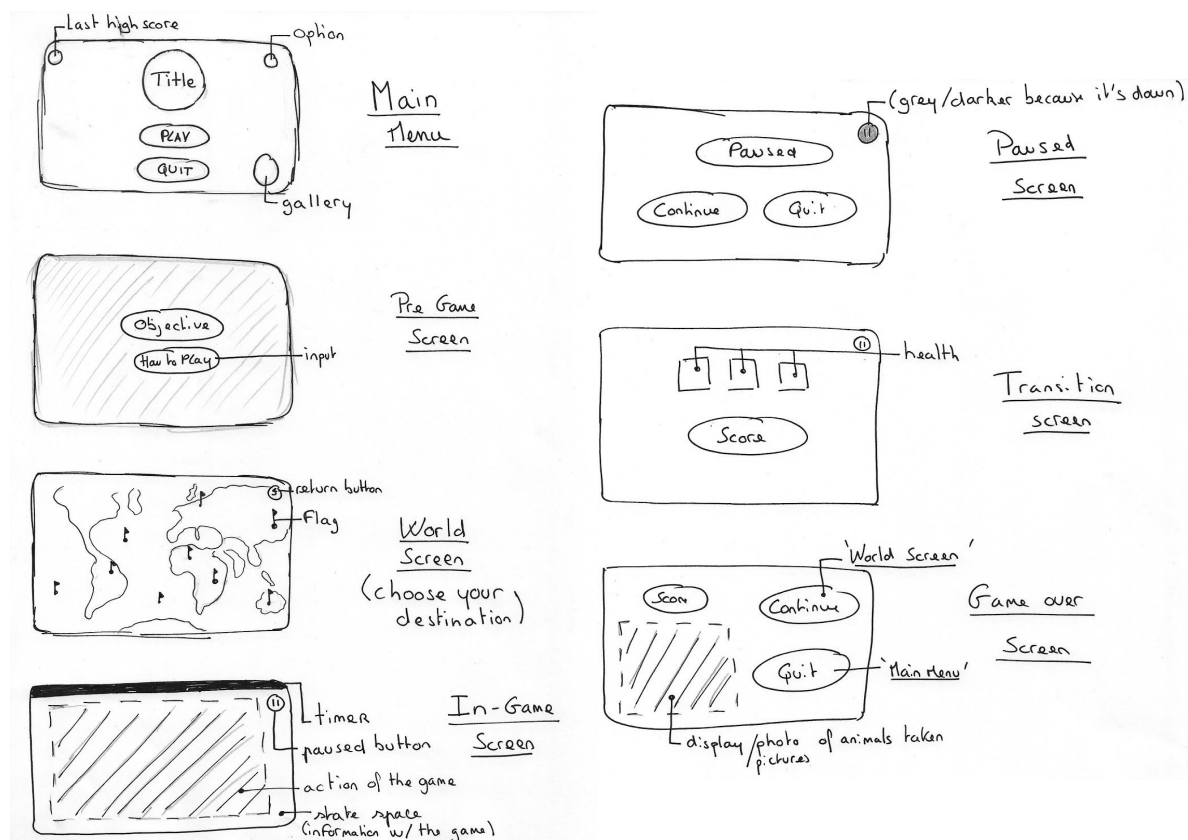 Last high score
option
Title
PLAY
QUIT
gallery
Main
Menu
Objective
How to Play
input
Pre Game
Screen
return button
Flag
World
Screen
(choose your
destination)
timer
paused button
action of the game
state space
(information w/ the game)
In-Game
Screen
(grey/darker because it's down)
Paused
Continue
Quit
Paused
Screen
health
Score
Transition
screen
'World Screen'
Score
Continue
Quit
'Main Menu'
display/photo of animals taken
pictures
Game over
Screen